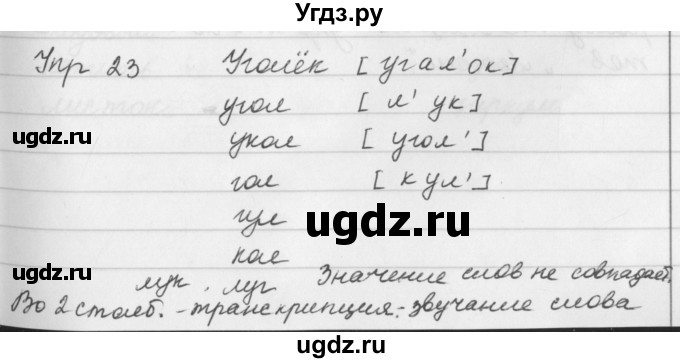 Угдз.ру
Упр 23 Уголёк [угал'ок]
угол [л'ук]
ugdz.ru ugdz.ru
укол [угол']
гол [кул']
ugdz.ru
гул
кол
лук, луг Значение слов не совпадает.
Во 2 столб. - транскрипция - звучание слова
ugdz.ru ugdz.ru